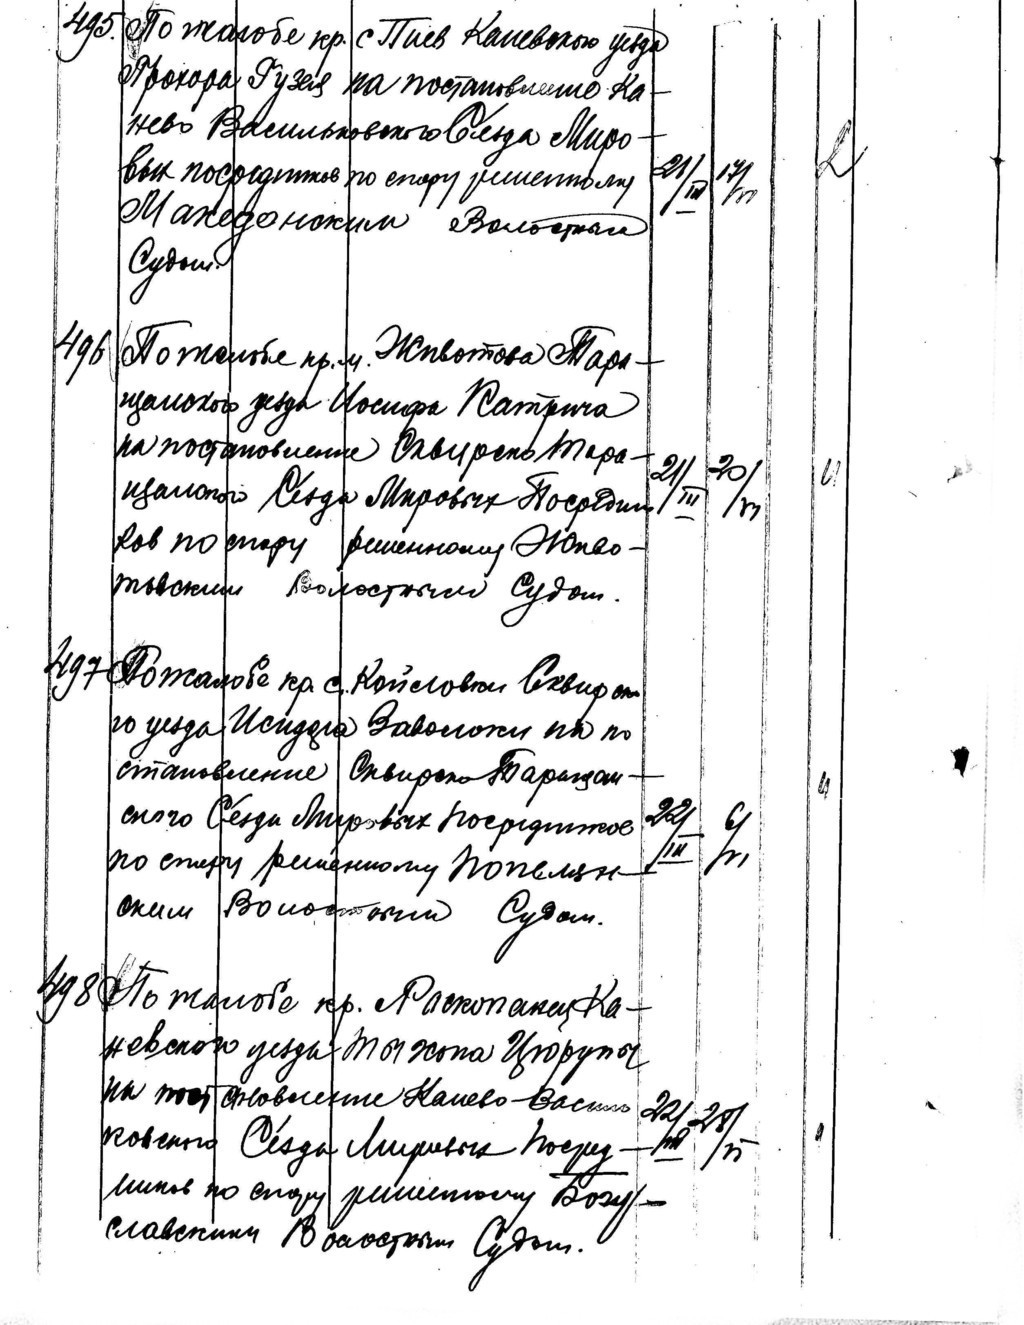 495. По жалобе кр. с Пиев Каневского уезда
Прохора Гузея на постановление Ка-
нево Васильковского Съезда Миро-
вых посредников по спору решенному 21/III 17/VI
Македонским Волостным
Судом.
496 По жалобе кр. м. Животова Тара-
щанского уезда Иосифа Катрича
на постановление Сквирско Тара-
щанского Съезда Мировых Посредни 21/III 20/VI и
ков по спору решенному Живо-
товским Волостным Судом.
497 По жалобе кр. с. Койловки Сквирско
го уезда Исидора Заволоки на по
становление Сквирско Таращан-
ского Съезда Мировых Посредников 22/III 6/VI и
по спору решенному Попелян-
ским Волостным Судом.
498 По жалобе кр. Расколанец Ка-
невского уезда Тыхона Цюрупы
на постановление Канево-Василь
ковского Съезда Мировых Посред- 22/III 28/VI
ников по спору решенному Богу-
славским Волостным Судом.